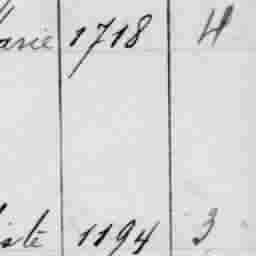 arie 1718 H
iste 1194 3